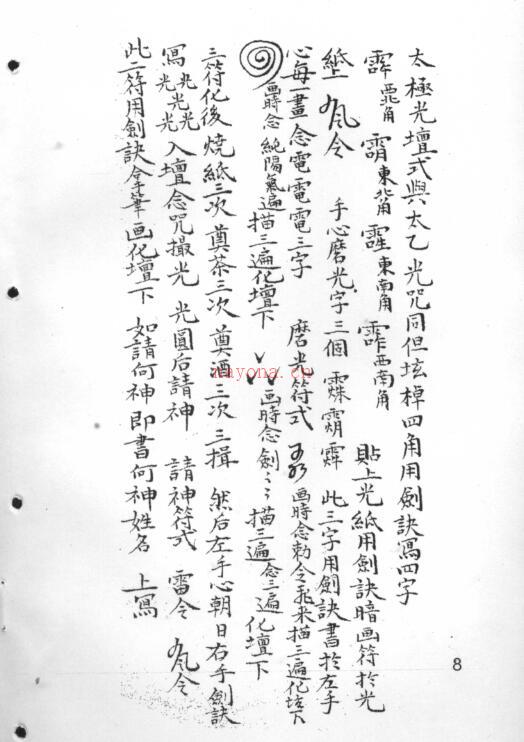 太極光壇式與太乙光咒同但坛棹四角用劍訣寫四字
西北角 東北角 東南角 西南角 貼上光紙用劍訣暗画符於光
紙上 令 手心磨光字三個 此三字用劍訣書於左手
心每一畫念電電電三字 磨光符式 画時念勅令 米描三遍化坛下
画時念純陽氣遍描三遍化壇下 画時念劍々々描三遍念三遍化壇下
三符化後燒紙三次奠茶三次奠酒三次三揖 然后左手心朝日右手劍訣
寫光光光光光光入壇念咒撮光 光圓后請神 請神符式 雷令 令
此二符用劍訣合筆画化壇下 如請何神即書何神姓名 上寫
8
nayona.cn